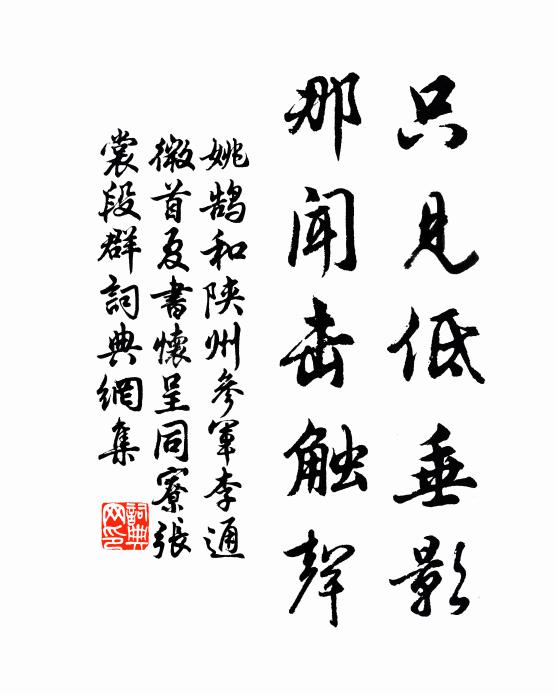 只見低垂影
那聞击触聲
姚鹄和陝州參軍李通
微首夏書懷呈同寮張
裳段群詞典網集
詞典
网印